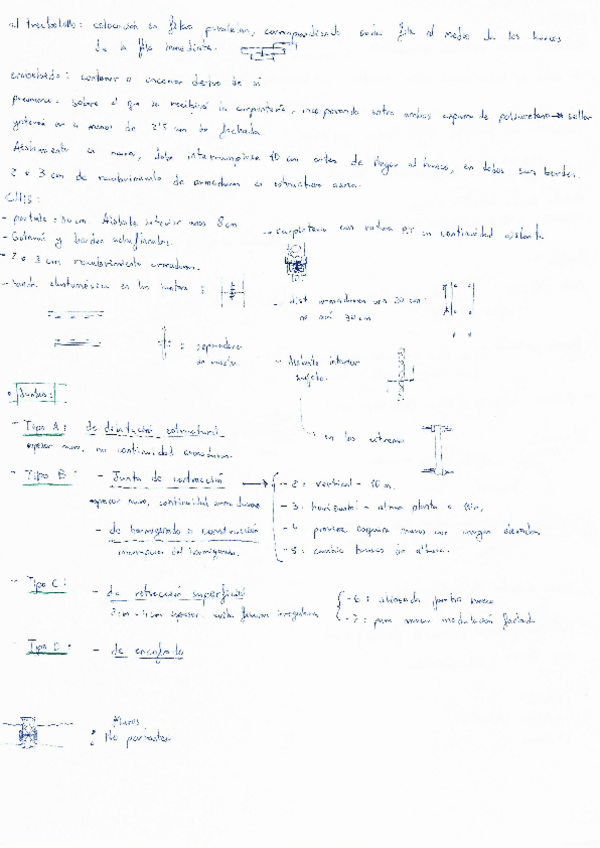 al tresbolillo: colocación en filas paralelas, correspondiendo cada fila al medio de los huecos
de la fila inmediata.
embebido: contener o encerrar dentro de sí
premarco: sobre el que se recibirá la carpintería, incorporando entre ambos espuma de poliuretano → sellar
a menos de 2'5 cm de fachada
Aislamiento en muro, debe interrumpirse 10 cm antes de llegar al hueco, en todos sus bordes.
2 o 3 cm de recubrimiento de armaduras en estructura
- portante: 30 cm Aislante interior unos 8 cm
- carpintería con rotura P.T. en continuidad aislante
- 2 o 3 cm recubrimiento armaduras.
- banda elastomérica en las juntas:
- dist armaduras son 20 cm:
no 30 cm
: separadores
- Aislante interior
sujeto.
: en los extremos
• Juntas:
- Tipo A: de dilatación estructural
espesor muro, no continuidad armaduras.
- Tipo B: - Junta de contracción →
espesor muro, continuidad armaduras
- de hormigonado o construcción
del hormigonado.
- 2: vertical - 10 m.
- 3: horizontal - altura planta
- 4
- 5: cambio huecos de altura.
- Tipo C: - de retracción superficial
2 cm - 4 cm espesor, evita fisuras irregulares
- 6:
- 7: para marcar modulación fachada
Tipo D: - de encofrado
Muros
: No portantes